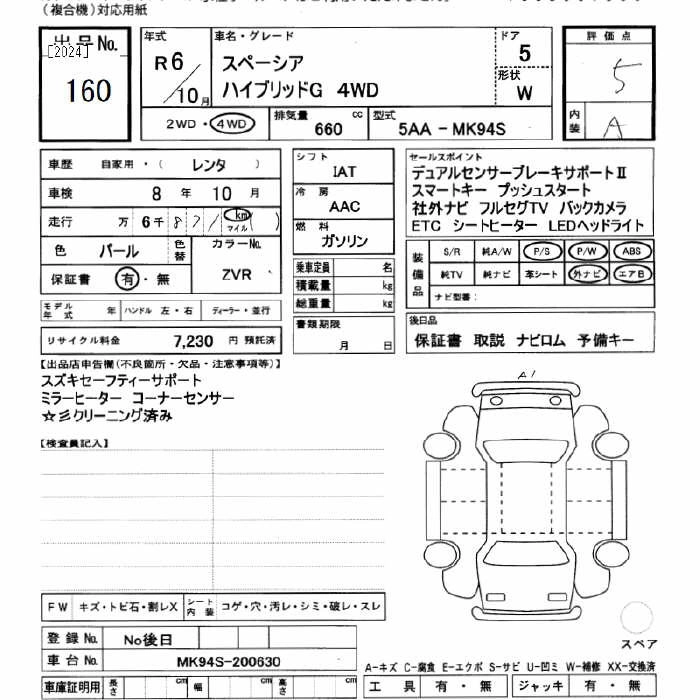 （複合機）対応用紙
出品No.
[2024]
160
年式
R6/10月
車名・グレード
スペーシア
ハイブリッドG 4WD
ドア
5
形状
W
評価点
5
内装
A
2WD・4WD
排気量
660 cc
型式
5AA－MK94S
車歴 自家用・（ レンタ ）
車検 8年 10月
走行 万 6千 871 km マイル
色 パール
色替
カラーNo.
ZVR
保証書 有・無
モデル年式 年
ハンドル 左・右
ディーラー・並行
リサイクル料金 7,230 円 預託済
シフト
IAT
冷房
AAC
燃料
ガソリン
乗車定員 名
積載量 kg
総重量 kg
書類期限
月 日
セールスポイント
デュアルセンサーブレーキサポートⅡ
スマートキー プッシュスタート
社外ナビ フルセグTV バックカメラ
ETC シートヒーター LEDヘッドライト
装備品
S/R 純A/W P/S P/W ABS
純TV 純ナビ 革シート 外ナビ エアB
ナビ型番：
後日品
保証書 取説 ナビロム 予備キー
【出品店申告欄(不良箇所・欠品・注意事項等)】
スズキセーフティーサポート
ミラーヒーター コーナーセンサー
☆彡クリーニング済み
【検査員記入】
A1
FW キズ・トビ石・割レX
シート内装 コゲ・穴・汚レ・シミ・破レ・スレ
登録No. No後日
車台No. MK94S-200630
車庫証明用 長さ cm 幅 cm 高さ cm
スペア
A-キズ C-腐食 E-エクボ S-サビ U-凹ミ W-補修 XX-交換済
工具 有・無 ジャッキ 有・無